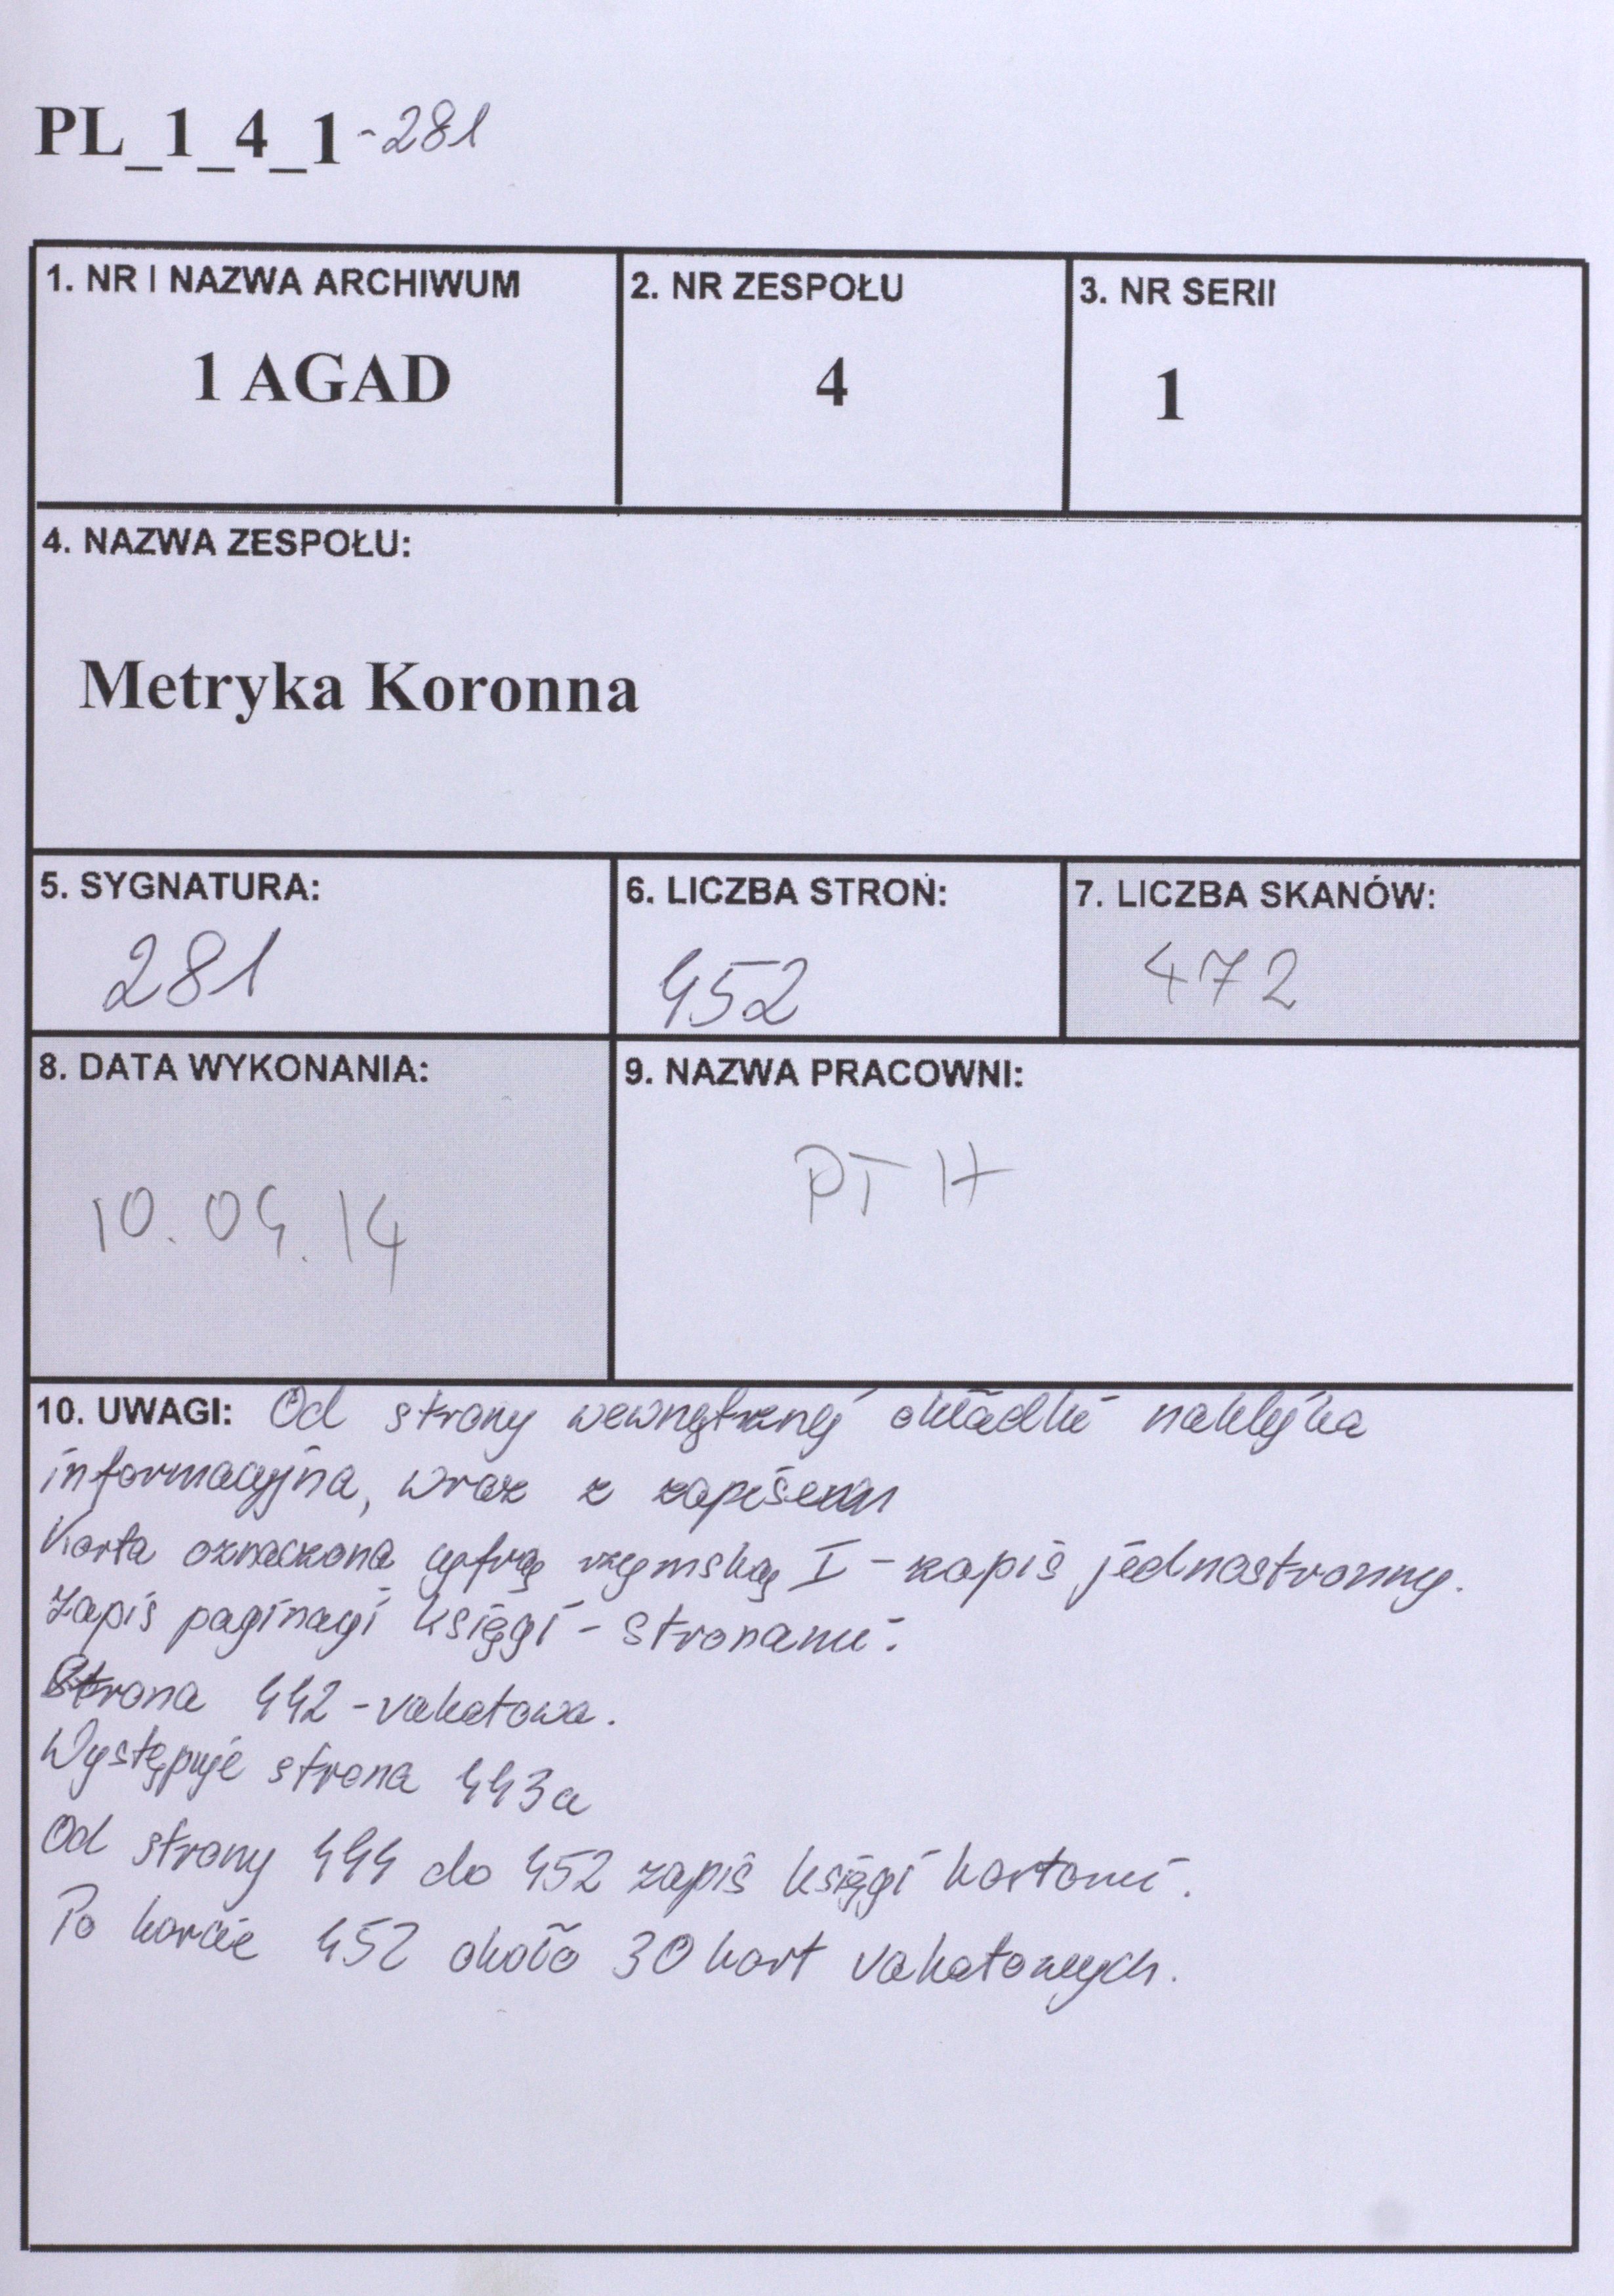 PL_1_4_1-281
1. NR I NAZWA ARCHIWUM
1 AGAD
2. NR ZESPOŁU
4
3. NR SERII
1
4. NAZWA ZESPOŁU:
Metryka Koronna
5. SYGNATURA:
281
6. LICZBA STRON:
452
7. LICZBA SKANÓW:
472
8. DATA WYKONANIA:
10.04.14
9. NAZWA PRACOWNI:
PTH
10. UWAGI: Od strony wewnętrznej okładki naklejka
informacyjna, wraz z zapisem
Karta oznaczona cyfrą rzymską I - zapis jednostronny.
Zapis paginagi księgi - stronami.
Strona 442 - vakatowa.
Występuje strona 443a
Od strony 444 do 452 zapis księgi kartami.
Po karcie 452 około 30 kart vakatowych.